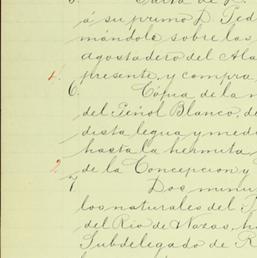 5. Carta de
á su primo D. Ped
mándole sobre las
agostadero del Ala
4. presente, y compra
6. Cópia de la
del Peñol Blanco, de
dista legua y medi
hasta la hermita
2 de la Concepcion y
7 Dos minu
los naturales del
del Rio de Nazas, h
Subdelegado de R